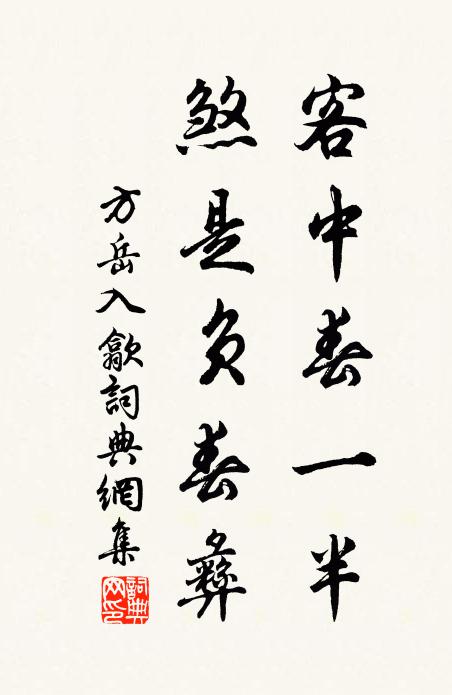 客中春一半
煞是負春彝
方岳入歙詞典網集
詞典网印